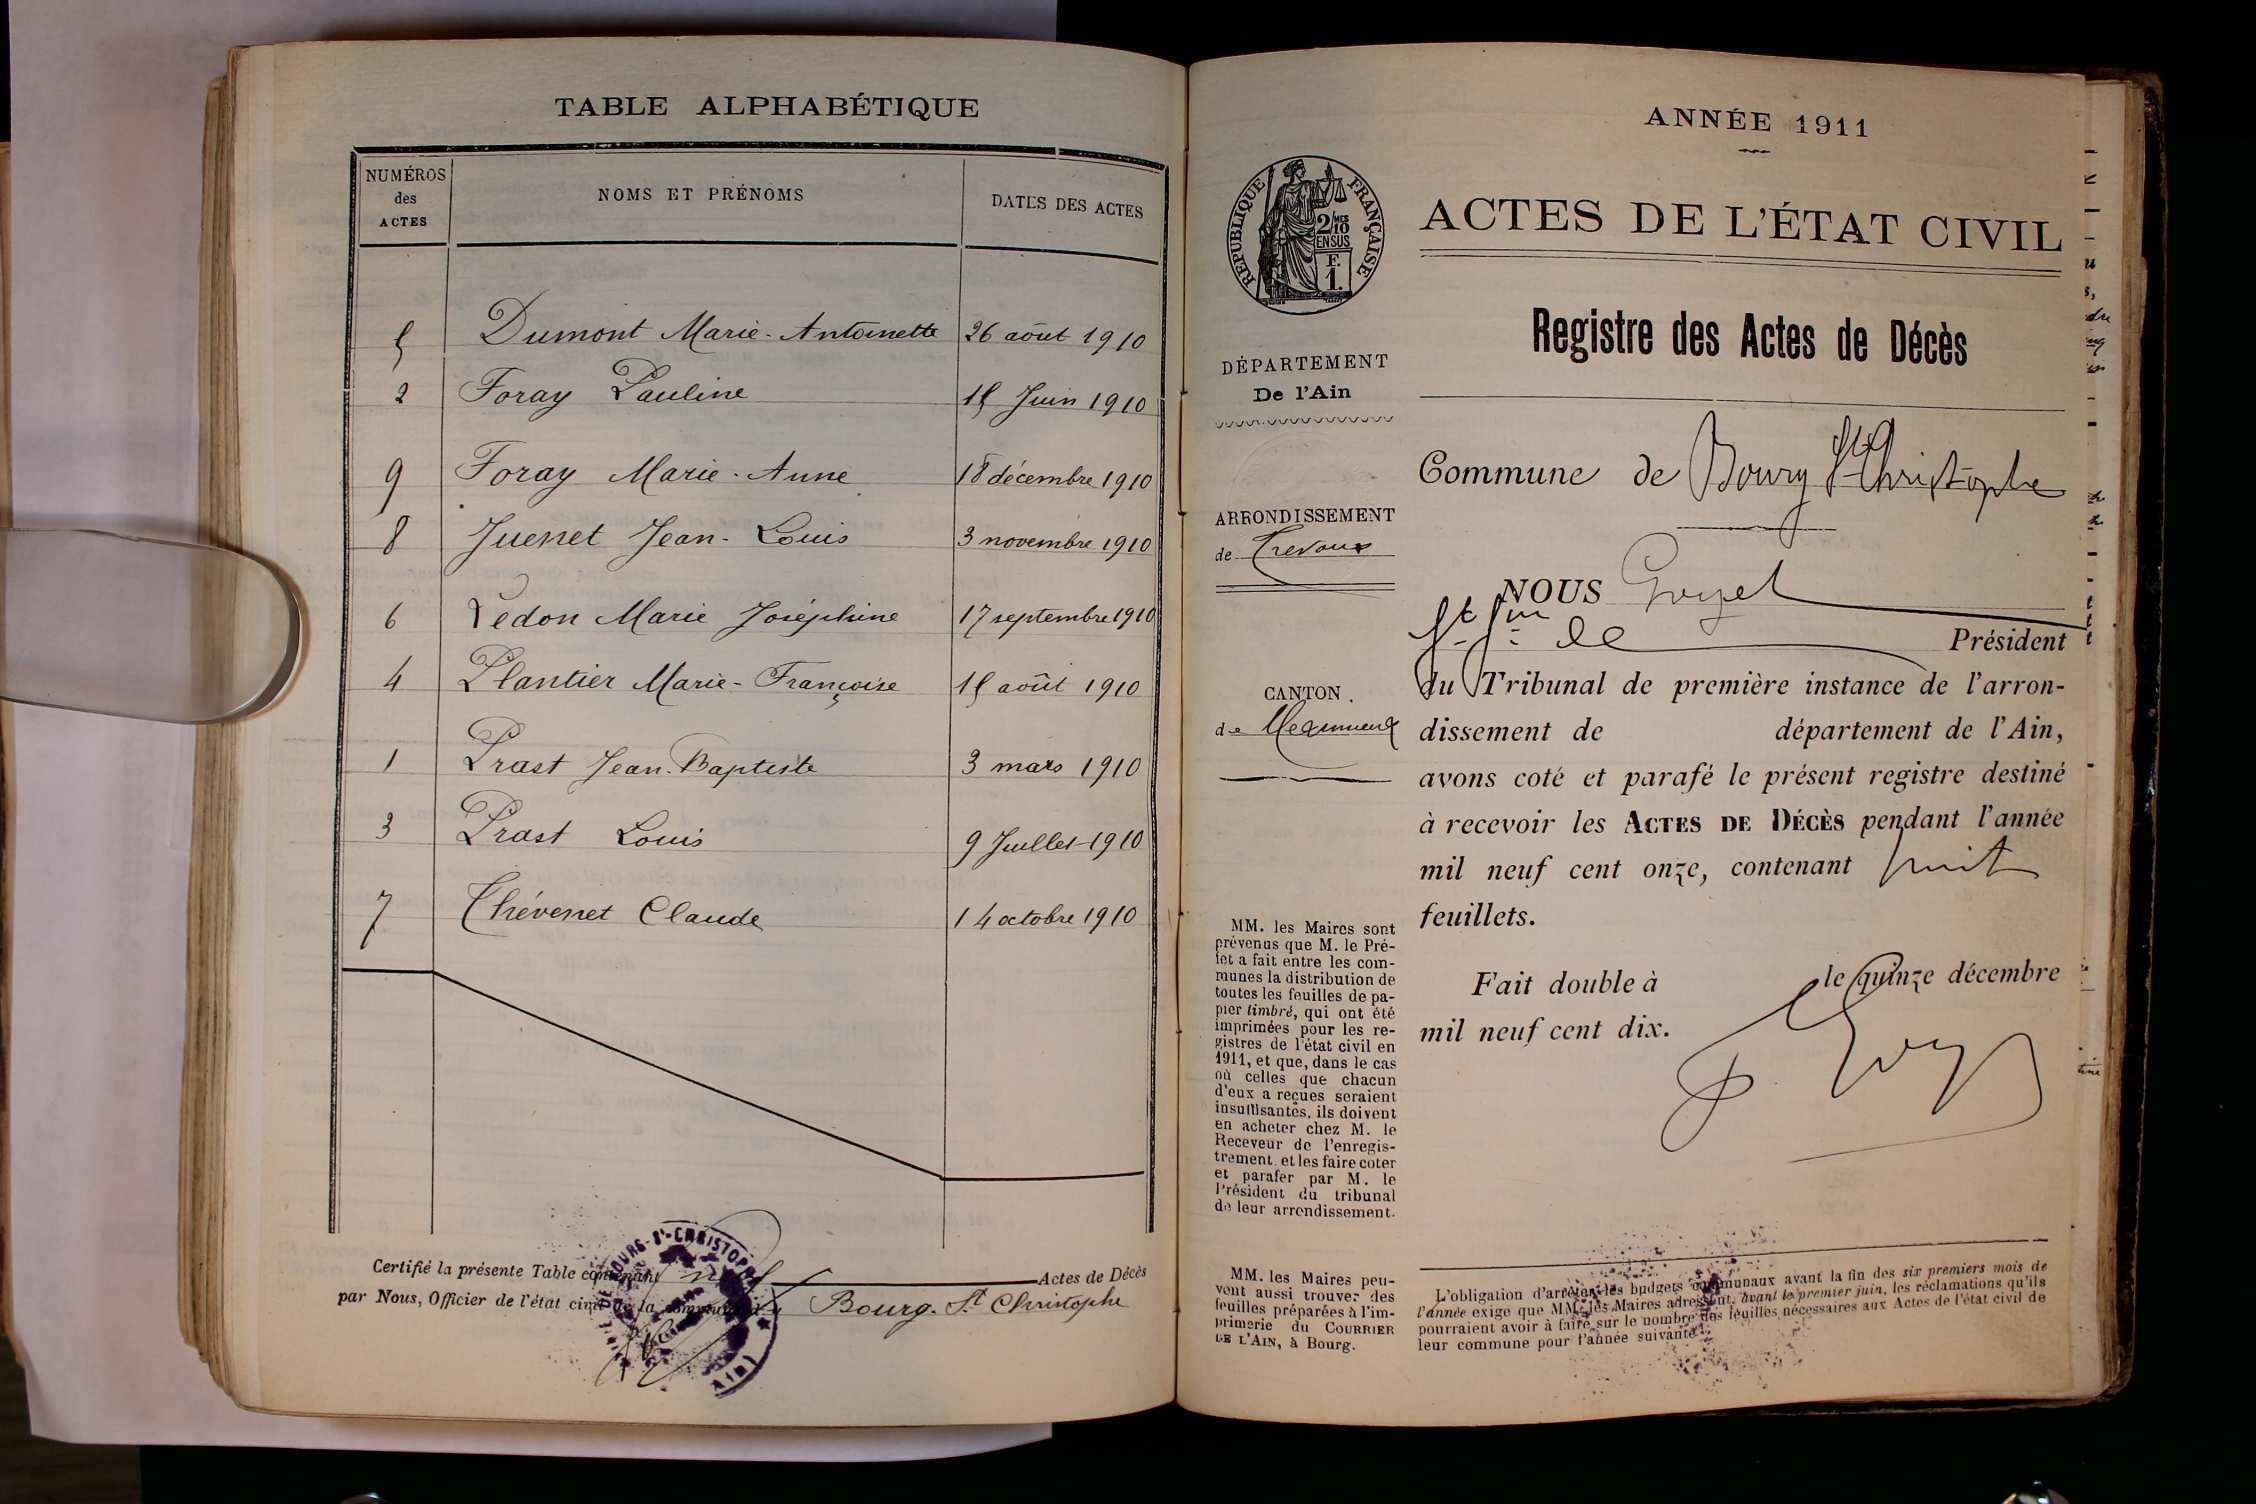 TABLE ALPHABÉTIQUE
NUMÉROS des ACTES
NOMS ET PRÉNOMS
DATES DES ACTES
5 Dumont Marie-Antoinette 26 août 1910
2 Foray Pauline 15 Juin 1910
9 Foray Marie-Anne 18 décembre 1910
8 Juenet Jean-Louis 3 novembre 1910
6 Ledon Marie Joséphine 17 septembre 1910
4 Plantier Marie-Françoise 15 août 1910
1 Prast Jean-Baptiste 3 mars 1910
3 Prast Louis 9 Juillet 1910
7 Thévenet Claude 14 octobre 1910
Certifié la présente Table contenant neuf Actes de Décès
par Nous, Officier de l'état civil de la commune de Bourg-St Christophe
MAIRIE DE BOURG-ST-CHRISTOPHE (AIN)
ANNÉE 1911
RÉPUBLIQUE FRANÇAISE
2/10 MES
EN SUS
F.
1.
ACTES DE L'ÉTAT CIVIL
Registre des Actes de Décès
DÉPARTEMENT
De l'Ain
Commune de Bourg St Christophe
ARRONDISSEMENT
de Trevoux
CANTON
de Meximieux
NOUS Goyet
Président
du Tribunal de première instance de l'arron-
dissement de département de l'Ain,
avons coté et parafé le présent registre destiné
à recevoir les ACTES DE DÉCÈS pendant l'année
mil neuf cent onze, contenant huit
feuillets.
Fait double à le quinze décembre
mil neuf cent dix.
MM. les Maires sont
prévenus que M. le Pré-
fet a fait entre les com-
munes la distribution de
toutes les feuilles de pa-
pier timbré, qui ont été
imprimées pour les re-
gistres de l'état civil en
1911, et que, dans le cas
où celles que chacun
d'eux a reçues seraient
insuffisantes, ils doivent
en acheter chez M. le
Receveur de l'enregis-
trement, et les faire coter
et parafer par M. le
Président du tribunal
de leur arrondissement.
MM. les Maires peu-
vent aussi trouver des
feuilles préparées à l'im-
primerie du COURRIER
DE L'AIN, à Bourg.
L'obligation d'arrêter les budgets communaux avant la fin des six premiers mois de
l'année exige que MM. les Maires adressent, avant le premier juin, les réclamations qu'ils
pourraient avoir à faire sur le nombre des feuilles nécessaires aux Actes de l'état civil de
leur commune pour l'année suivante.